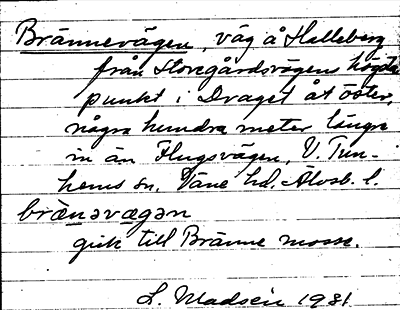 Brännevägen, väg å Halleberg
från Storegårdsvägens högsta
punkt i Draget åt öster,
några hundra meter längre
in än Flugsvägen, V. Tun-
hems sn, Väne hd. Älvsb. l.
brànavægan
gick till Bränne mosse.
L. Madsén 1931